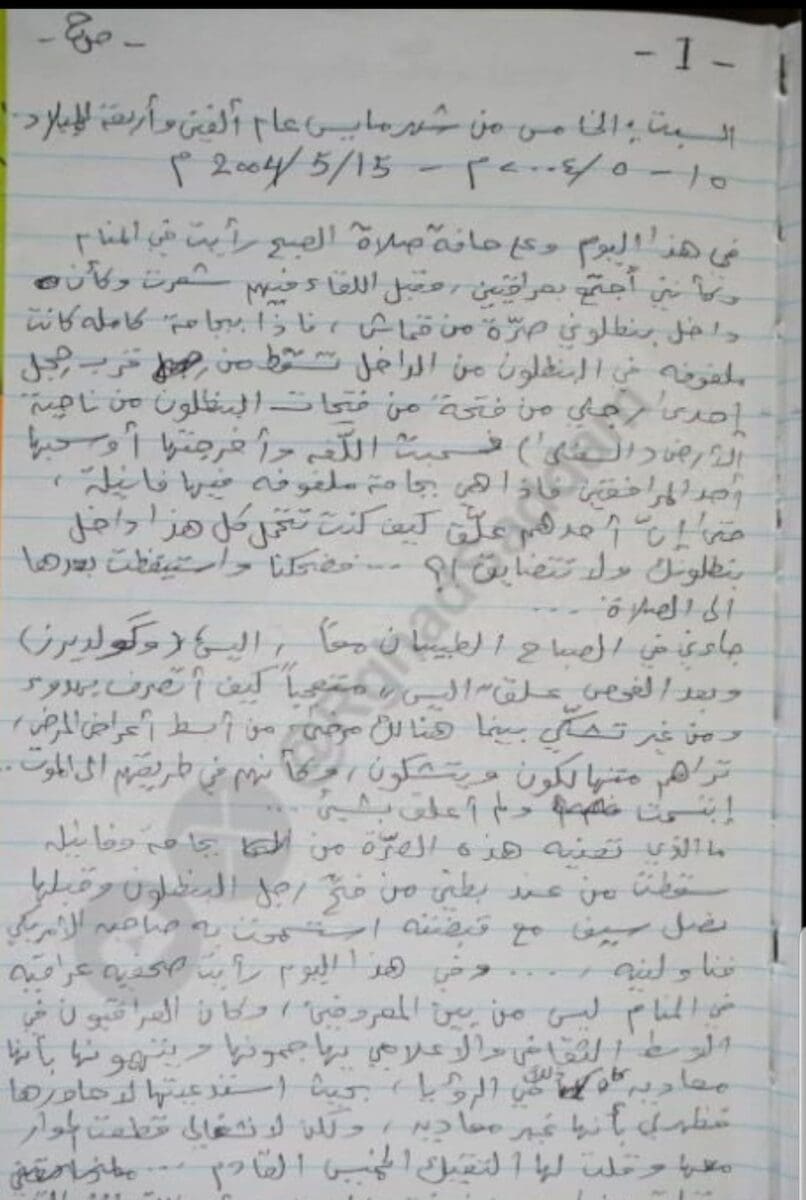 - 1 -
السبت: الخامس من شهر مايس عام ألفين وأربعة للميلاد
١٥ - ٥ / ٢٠٠٤ م - 2004/5/15 م
في هذا اليوم وعلى حافة صلاة الصبح رأيت في المنام
وكأنني أجتمع بعراقيين، وقبل اللقاء فيهم شعرت وكأن
داخل بنطلوني صرّة من قماش، فاذا بيجامة كامله كانت
ملفوفه في البنطلون من الداخل تسقط من قرب رجل
إحدى رجلي من فتحة من فتحات البنطلون من ناحية
الأرض (السفلى) فسحبت اللّفه وأخرجتها أو سحبها
أحد المرافقين فاذا هي بجامة ملفوفه فيها فانيلة،
حتى إنّ أحدهم علّق كيف كنت تتحمل كل هذا داخل
بنطلونك ولا تتضايق!؟ ... فضحكنا واستيقظت بعدها
الى الصلاة ...
جاءني في الصباح الطبيبان معاً، اليس (وگولديرز)
وبعد الفحص علق اليس، متعجباً كيف أتصرف بهدوء
ومن غير تشكّي بينما هنالك مرضى، من أبسط أعراض المرض،
تراهم متهالكون ويتشكون، وكأنهم في طريقهم الى الموت..
إبتسمت ولم أعلق بشيئ ...
ما الذي تعنيه هذه الصّرة من بجامة وفانيله
سقطت من عند بطني من فتحة رجل البنطلون وقبلها
نصل سيف مع قبضته استسمحت به صاحبه الأمريكي
فناولنيه، .... وفي هذا اليوم رأيت صحفيه عراقيه
في المنام ليس من بين المعروفين، وكان العراقيون في
الوسط الثقافي والاعلامي يهاجمونها ويتهمونها بأنها
معاديه في الرؤيا، بحيث استدعيتها لاحاورها
فظهر لي بأنها غير معاديه، ولكن لانشغالي قطعت الحوار
معها وقلت لها ألتقيك الخميس القادم ...
@RghadSaddam